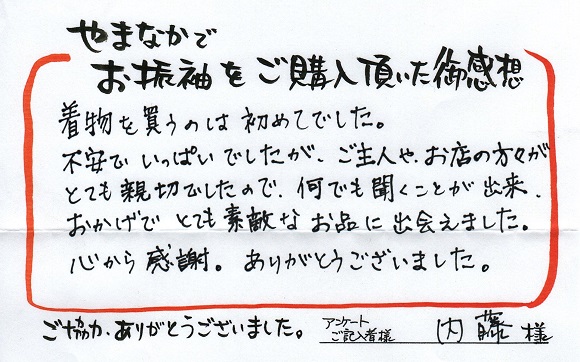 やまなかで
お振袖をご購入頂いた御感想
着物を買うのは初めてでした。
不安でいっぱいでしたが、ご主人や、お店の方々が
とても親切でしたので、何でも聞くことが出来、
おかげでとても素敵なお品に出会えました。
心から感謝。ありがとうございました。
ご協力、ありがとうございました。 アンケートご記入者様 内藤 様